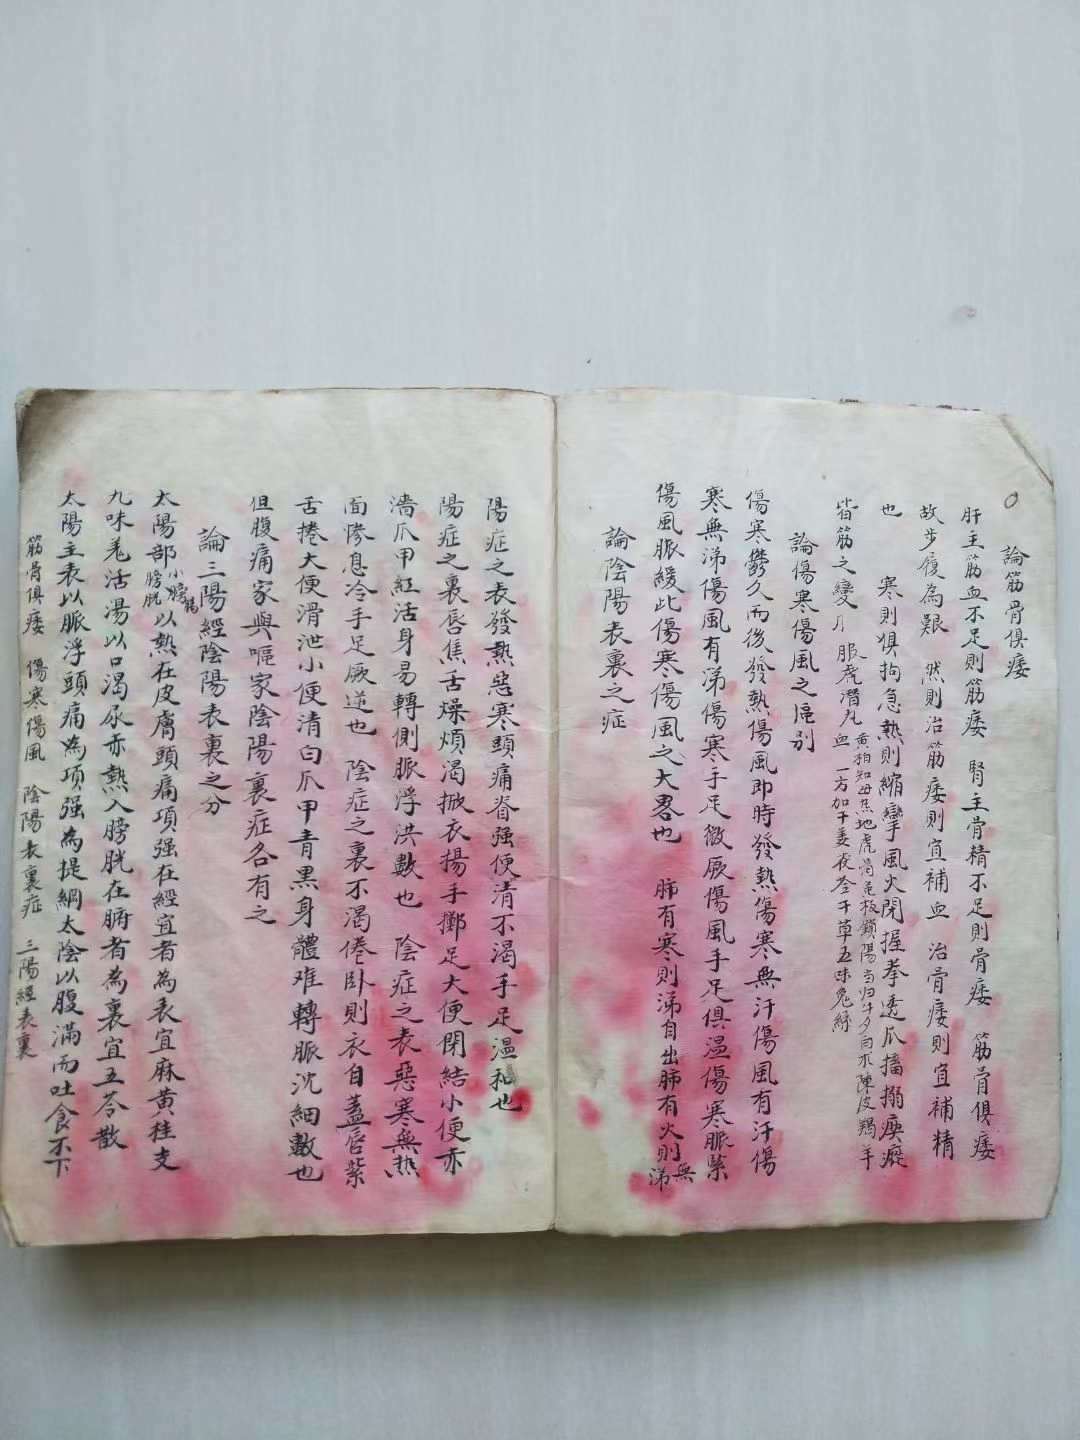 論筋骨俱痿
肝主筋血不足則筋痿 腎主骨精不足則骨痿 筋骨俱痿
故步履為艱 然則治筋痿則宜補血 治骨痿則宜補精
也 寒則俱拘急熱則縮攣風火閉握拳透爪搐搦瘈瘲
皆筋之變 服虎潛丸 黃柏知母熟地虎骨龜板鎖陽当归牛夕白朮陳皮羯羊
血 一方加干姜茯苓干草五味兔絲
論傷寒傷風之區别
傷寒鬱久而後發熱傷風即時發熱傷寒無汗傷風有汗傷
寒無涕傷風有涕傷寒手足微厥傷風手足俱温傷寒脈緊
傷風脈緩此傷寒傷風之大畧也 肺有寒則涕自出肺有火則無涕
論陰陽表裏之症
陽症之表發熱惡寒頭痛脊强便清不渴手足温和也
陽症之裏唇焦舌燥煩渴掀衣揚手擲足大便閉結小便赤
濇爪甲紅活身易轉側脈浮洪數也 陰症之表惡寒無热
面慘息冷手足厥逆也 陰症之裏不渴倦卧則衣自蓋唇紫
舌捲大便滑泄小便清白爪甲青黑身體难轉脈沈細數也
但腹痛家與嘔家陰陽裏症各有之
論三陽經陰陽表裏之分
太陽部小腸膀胱以熱在皮膚頭痛項强在經宜者為表宜麻黄桂支
九味羌活湯以口渴尿赤熱入膀胱在腑者為裏宜五苓散
太陽主表以脈浮頭痛為項强為提綱太陰以腹滿而吐食不下
筋骨俱痿 傷寒傷風 陰陽表裏症 三陽經表裏